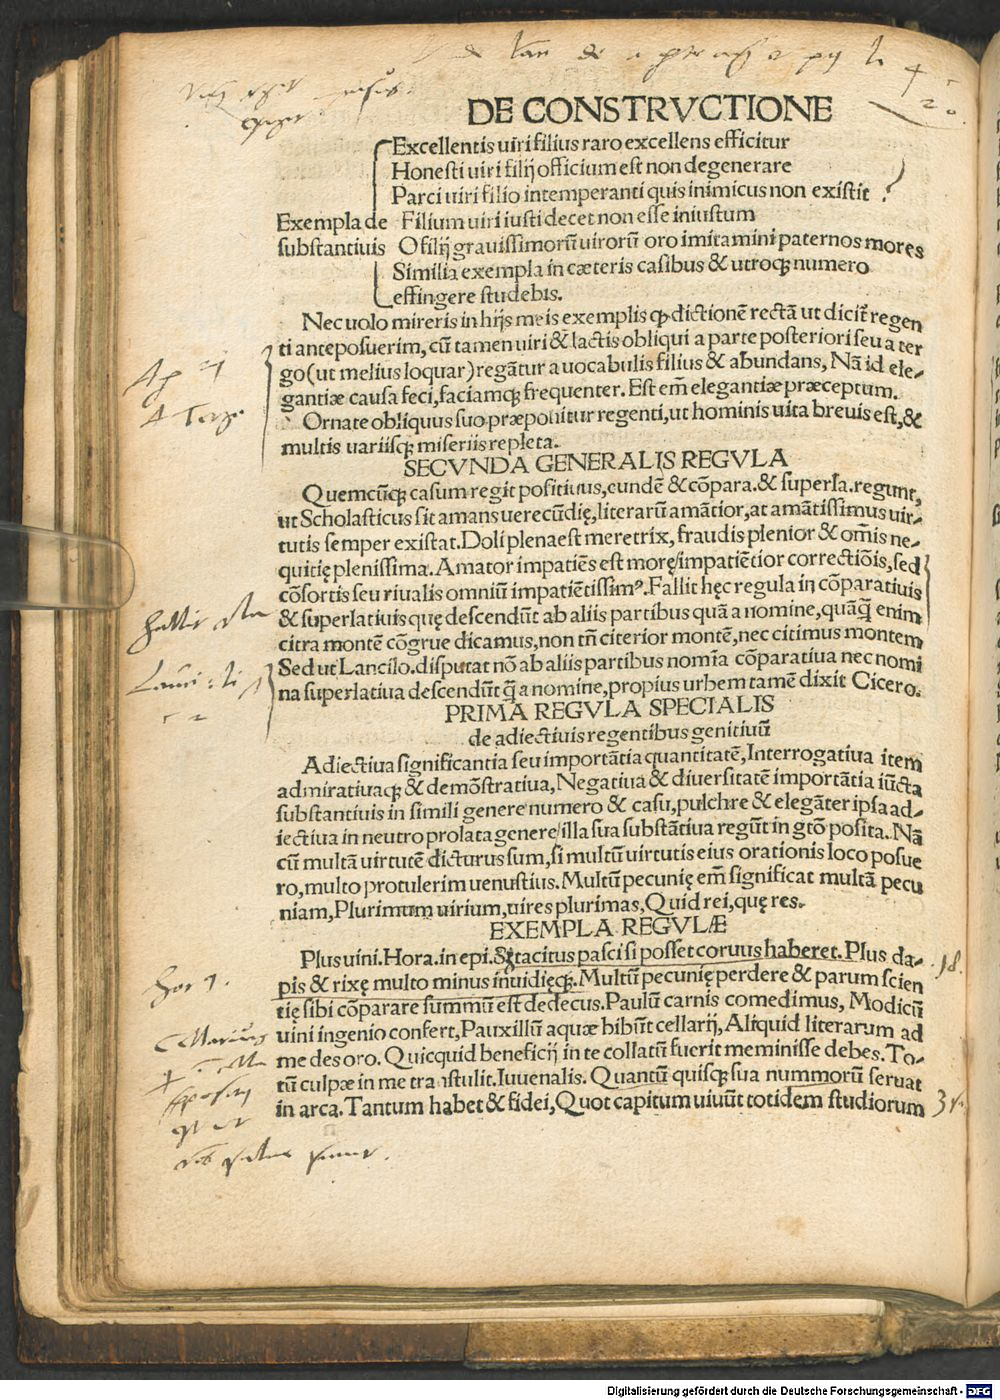 DE CONSTRVCTIONE
Excellentis uiri filius raro excellens efficitur
Honesti uiri filij officium est non degenerare
Parci uiri filio intemperanti quis inimicus non existit ?
Exempla de Filium uiri iusti decet non esse iniustum
substantiuis O filij grauissimorũ uirorũ oro imitamini paternos mores
Similia exempla in cæteris casibus & utroqꝫ numero
effingere studebis.
Nec uolo mireris in hijs meis exemplis ꝙ dictionẽ rectã ut dicit̃ regen
ti anteposuerim, cũ tamen uiri & lactis obliqui a parte posteriori seu a ter
go (ut melius loquar) regãtur a uocabulis filius & abundans, Nã id ele-
gantiæ causa feci, faciamqꝫ frequenter. Est em̃ elegantiæ præceptum.
Ornate obliquus suo præponitur regenti, ut hominis uita breuis est, &
multis uariisqꝫ miseriis repleta.
SECVNDA GENERALIS REGVLA
Quemcũqꝫ casum regit positiuus, eundẽ & cõpara. & superla. regunt,
ut Scholasticus sit amans uerecũdię, literarũ amãtior, at amãtissimus uir-
tutis semper existat. Doli plena est meretrix, fraudis plenior & om̃is ne-
quitię plenissima. Amator impatiẽs est morę/impatiẽtior correctiõis, sed
cõsortis seu riualis omniũ impatiẽtissimꝰ. Fallit hęc regula in cõparatiuis
& superlatiuis quę descendũt ab aliis partibus quã a nomine, quãq̃ enim
citra montẽ cõgrue dicamus, non tñ citerior montẽ, nec citimus montem
Sed ut Lancilo. disputat nõ ab aliis partibus nomĩa cõparatiua nec nomi
na superlatiua descendũt q̃ a nomine, propius urbem tamẽ dixit Cicero.
PRIMA REGVLA SPECIALIS
de adiectiuis regentibus genitiuũ
Adiectiua significantia seu importãtia quantitatẽ, Interrogatiua item
admiratiuaqꝫ & demõstratiua, Negatiua & diuersitatẽ importãtia iũcta
substantiuis in simili genere numero & casu, pulchre & elegãter ipsa ad-
iectiua in neutro prolata genere/illa sua substãtiua regũt in gtõ posita. Nã
cũ multã uirtutẽ dicturus sum, si multũ uirtutis eius orationis loco posue
ro, multo protulerim uenustius. Multũ pecunię em̃ significat multã pecu
niam, Plurimum uirium, uires plurimas, Quid rei, quę res.
EXEMPLA REGVLÆ
Plus uini. Hora. in epi. Sꝫ tacitus pasci si posset coruus haberet. Plus da-
pis & rixę multo minus inuidięqꝫ. Multũ pecunię perdere & parum scien
tię sibi cõparare summũ est dedecus. Paulũ carnis comedimus, Modicũ
uini ingenio confert, Pauxillũ aquæ bibũt cellarij, Aliquid literarum ad
me des oro. Quicquid beneficij in te collatũ fuerit meminisse debes. To-
tũ culpæ in me transtulit. Iuuenalis. Quantũ quisqꝫ sua nummorũ seruat
in arca. Tantum habet & fidei, Quot capitum uiuũt totidem studiorum
Digitalisierung gefördert durch die Deutsche Forschungsgemeinschaft - DFG